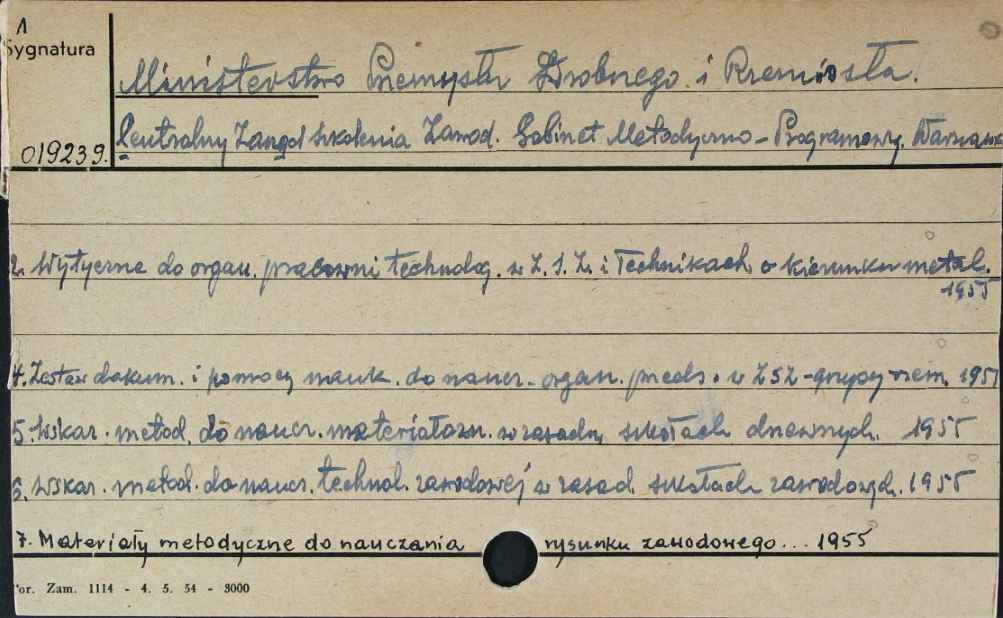 1
Sygnatura
Ministerstwo Przemysłu Drobnego i Rzemiosła.
019239.
Centralny Zarząd Szkolenia Zawod. Gabinet Metodyczno-Programowy. Warszawa
2. Wytyczne do organ. pracowni technolog. w Z.S.Z. i Technikach o kierunku metal.
1955
4. Zestaw dokum. i pomocy nauk. do naucz. organ. preds. w ZSZ-grupy rzem. 195
5. Wskaz. metod. do naucz. materiałozn. w zasadn. szkołach drzewnych. 1955
6. Wskaz. metod. do naucz. technol. zawodowej w zasad. szkołach zawodowych. 1955
7. Materiały metodyczne do nauczania rysunku zawodowego... 1955
or. Zam. 1114 - 4. 5. 54 - 3000